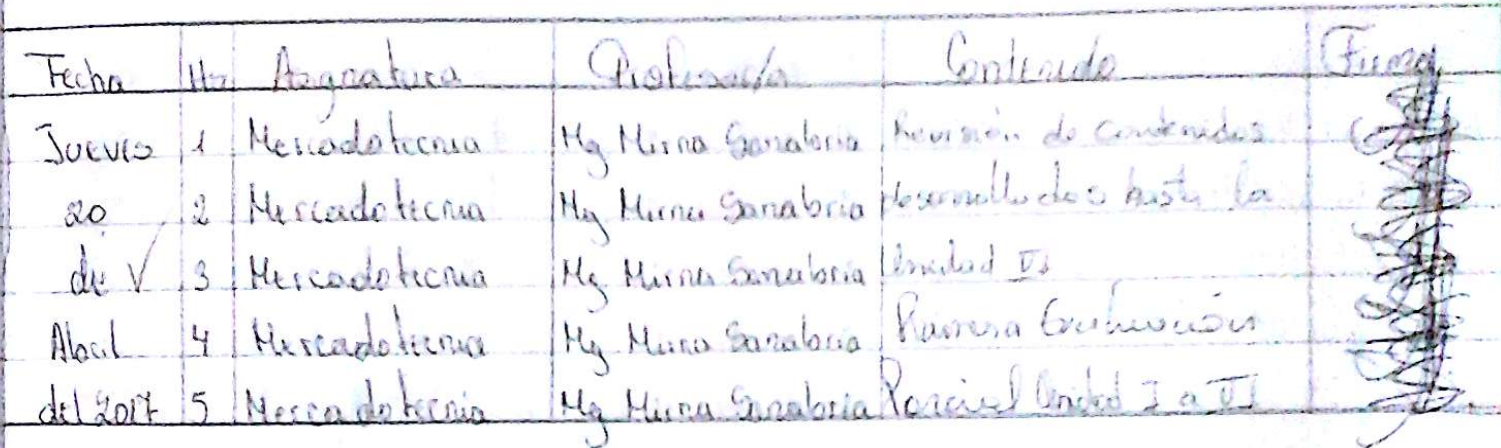 Fecha Hs Asignatura Profesor/a Contenido Firma
Jueves 1 Mercadotecnia Mg Mirna Sanabria Revisión de contenidos
20 2 Mercadotecnia Mg Mirna Sanabria desarrollados hasta la
de 3 Mercadotecnia Mg Mirna Sanabria Unidad VI
Abril 4 Mercadotecnia Mg Mirna Sanabria Primera Evaluación
del 2017 5 Mercadotecnia Mg Mirna Sanabria Parcial Unidad I a VI